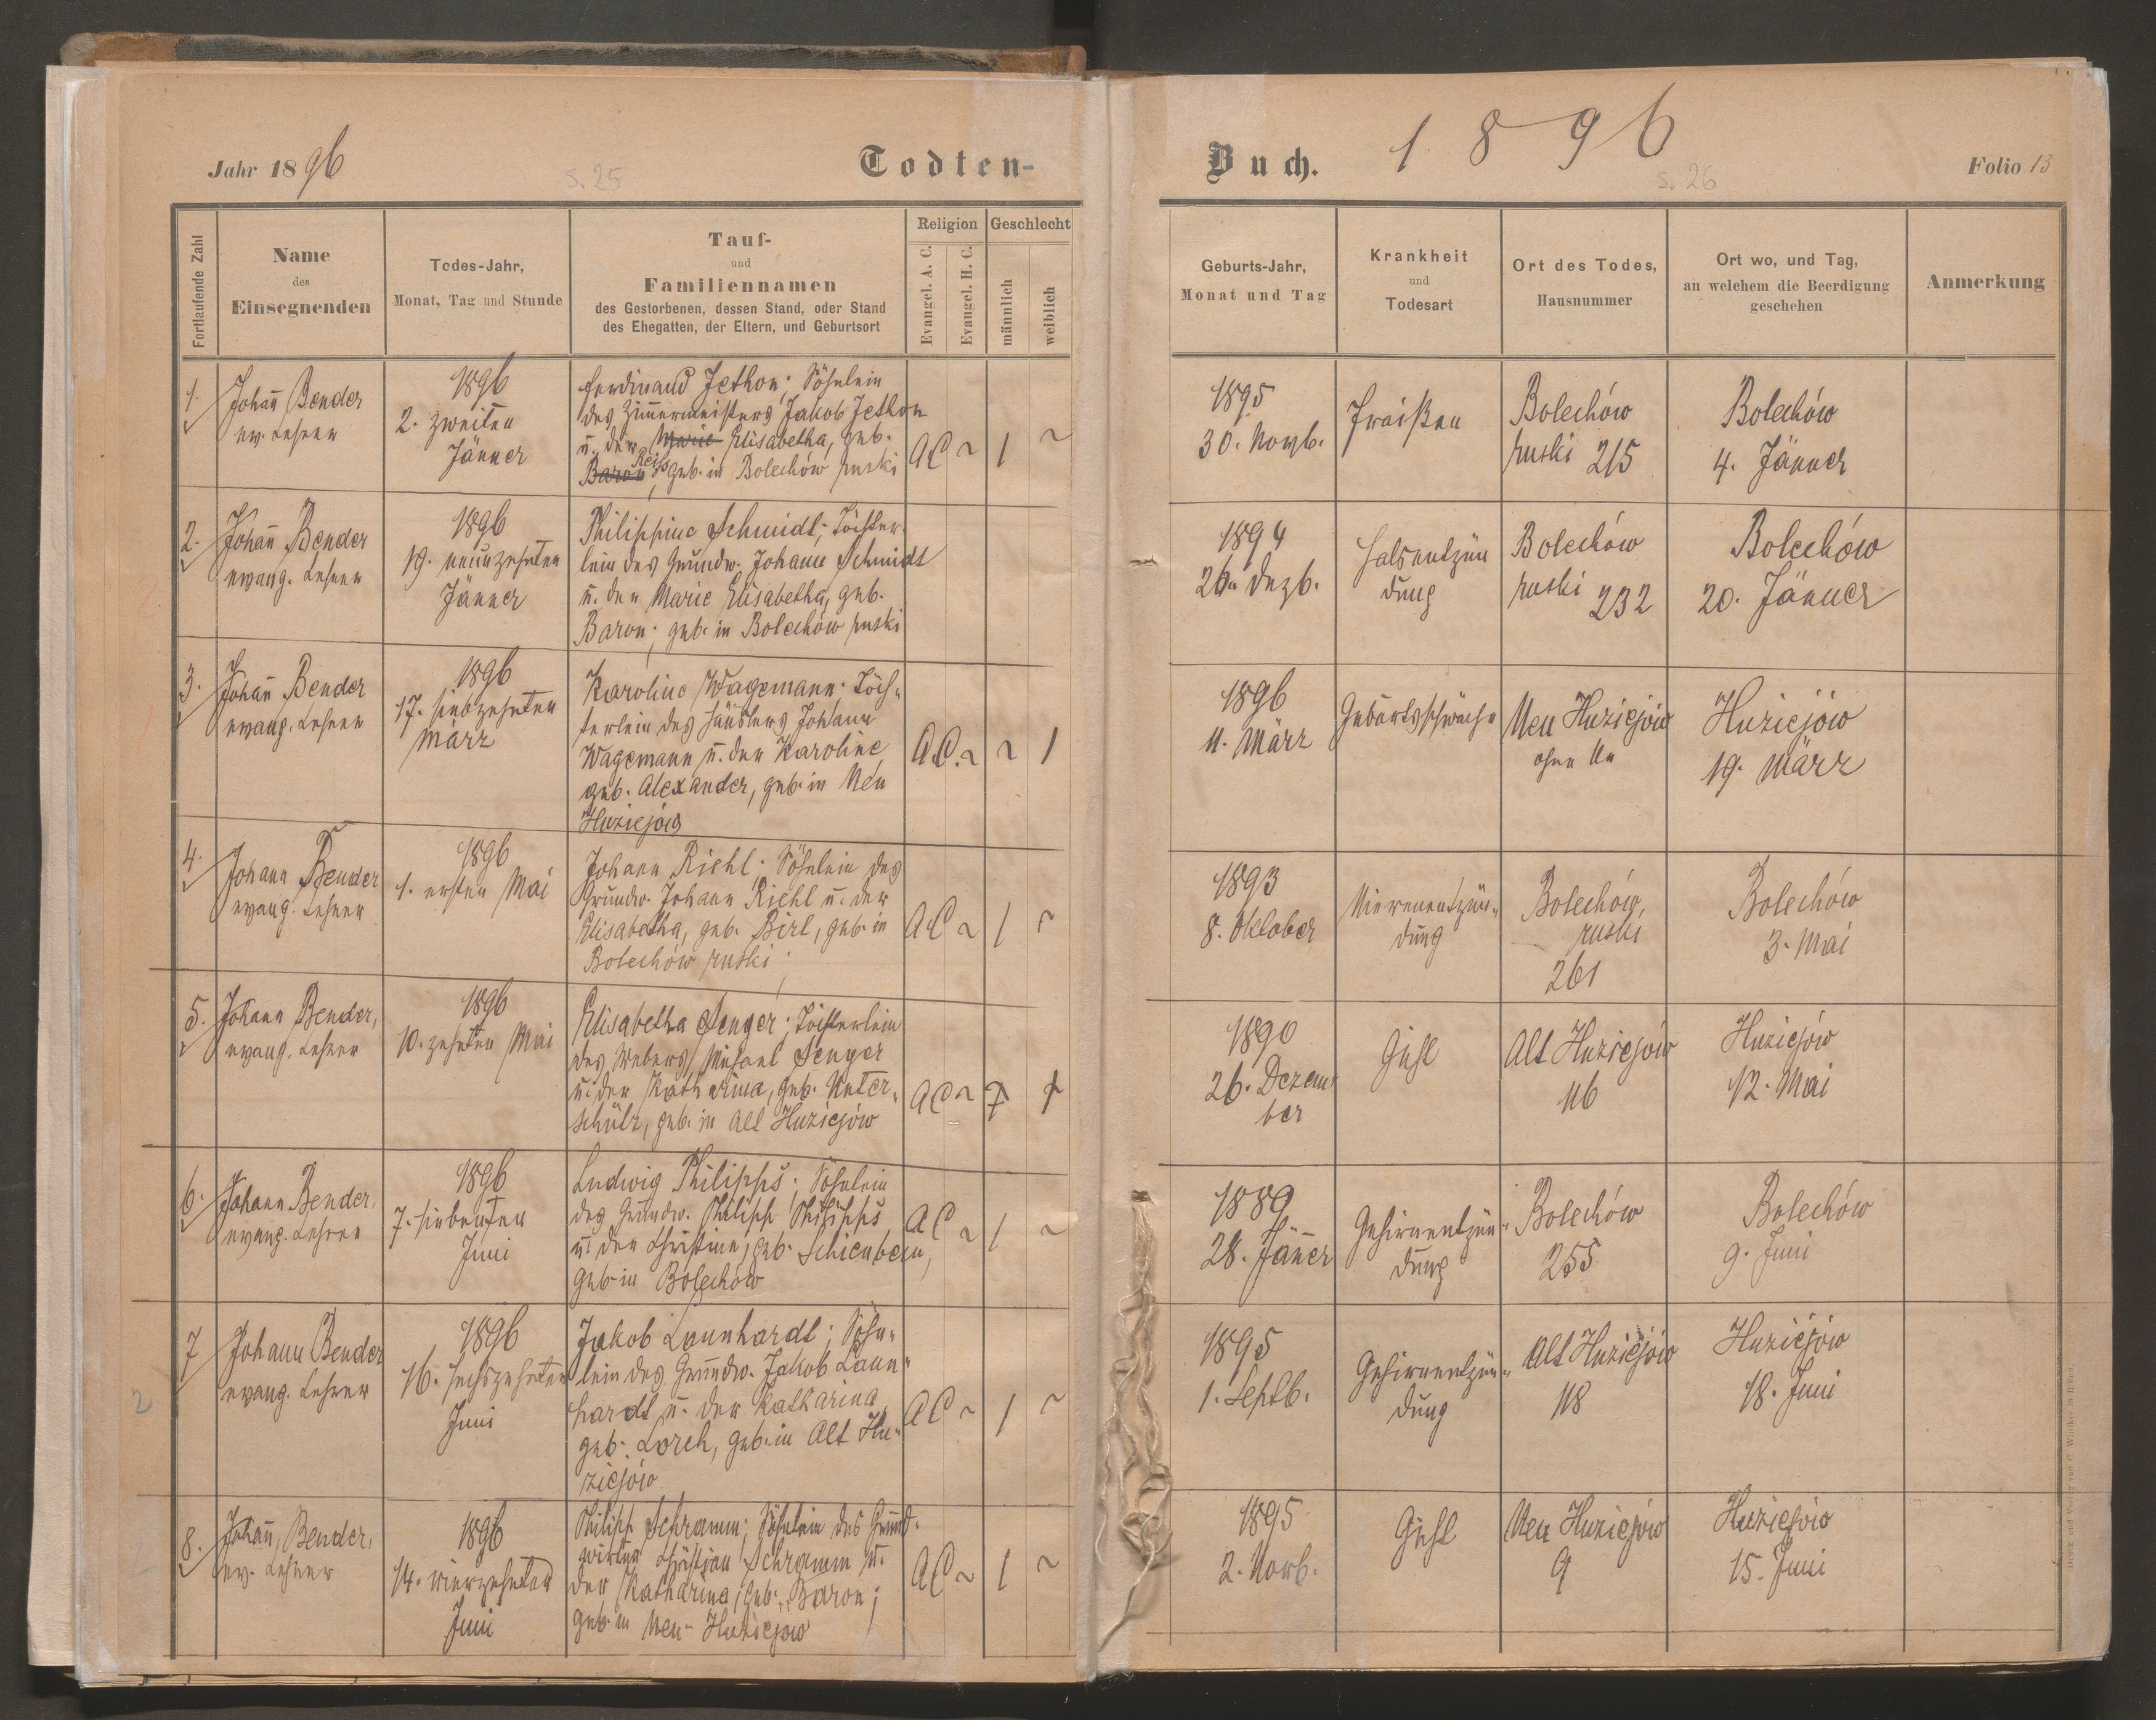 Jahr 1896
s. 25
Todten-
Fortlaufende Zahl
Name
des
Einsegnenden
Todes-Jahr,
Monat, Tag und Stunde
Tauf-
und
Familiennamen
des Gestorbenen, dessen Stand, oder Stand
des Ehegatten, der Eltern, und Geburtsort
Religion
Evangel. A. C.
Evangel. H. C.
Geschlecht
männlich
weiblich
1.
Johañ Bender
ev. Lehrer
1896
2. zweiten
Jänner
Ferdinand Jethon; Söhnlein
des Zim̄ermeisters Jakob Jethon
u. der Marie Elisabetha, geb.
Baron Reiß, geb. in Bolechów ruski
AC ~ 1 ~
2.
Johañ Bender
evang. Lehrer
1896
19. neunzehnten
Jänner
Philippine Schmidt; Töchter-
lein des Grundw. Johann Schmidt
u. der Marie Elisabetha, geb.
Baron; geb. in Bolechów ruski
3.
Johañ Bender
evang. Lehrer
1896
17. siebzehnten
März
Karoline Wagemann; Töch-
terlein des Häuslers Johann
Wagemann u. der Karoline
geb. Alexander, geb. in Neu
Huziejów
AC. ~ ~ 1
4.
Johann Bender
evang. Lehrer
1896
1. ersten Mai
Johann Riehl; Söhnlein des
Grundw. Johann Riehl u. der
Elisabetha, geb. Birl, geb. in
Bolechów ruski;
AC ~ 1 ~
5.
Johann Bender,
evang. Lehrer
1896
10. zehnten Mai
Elisabetha Senger; Töchterlein
des Webers Michael Senger
u. der Katharina, geb. Unter-
schütz, geb. in Alt Huziejów
AC ~ 1 1
6.
Johann Bender,
evang. Lehrer
1896
7. siebenten
Juni
Ludwig Philipps; Söhnlein
des Grundw. Philipp Philipps
u. der Christine, geb. Schienbein,
geb. in Bolechów
AC ~ 1 ~
7
Johann Bender
evang. Lehrer
1896
16. sechszehnten
Juni
Jakob Launhardt; Söhn-
lein des Grundw. Jakob Laun-
hardt u. der Katharina
geb. Lorch, geb. in Alt Hu-
ziejów
AC ~ 1 ~
2
8.
Johañ Bender,
ev. Lehrer
1896
14. vierzehnten
Juni
Philipp Schramm; Söhnlein des Grund-
wirten Christian Schramm u.
der Katharina, geb. Baron;
geb. in Neu-Huziejów
AC ~ 1 ~
Buch.
1896
s. 26
Folio 13
Geburts-Jahr,
Monat und Tag
Krankheit
und
Todesart
Ort des Todes,
Hausnummer
Ort wo, und Tag,
an welchem die Beerdigung
geschehen
Anmerkung
1895
30. Novb.
Fraißen
Bolechów
ruski 215
Bolechów
4. Jänner
1894
Dezb.
Halsentzün
dung
Bolechów
ruski 232
Bolechów
20. Jänner
1896
11. März
Geburtsschwäche
Neu Huziejów
ohne Nr
Huziejów
19. März
1893
8. Oktober
Nierenentzün-
dung
Bolechów,
ruski
261
Bolechów
3. Mai
1890
26. Dezem-
ber
Gicht
Alt Huziejów
116
Huziejów
12. Mai
1889
28. Jäñer
Gehirnentzün-
dung
Bolechów
255
Bolechów
9. Juni
1895
1. Septb.
Gehirnentzün-
dung
Alt Huziejów
118
Huziejów
18. Juni
1895
2. Novb.
Gicht
Neu Huziejów
9
Huziejów
15. Juni